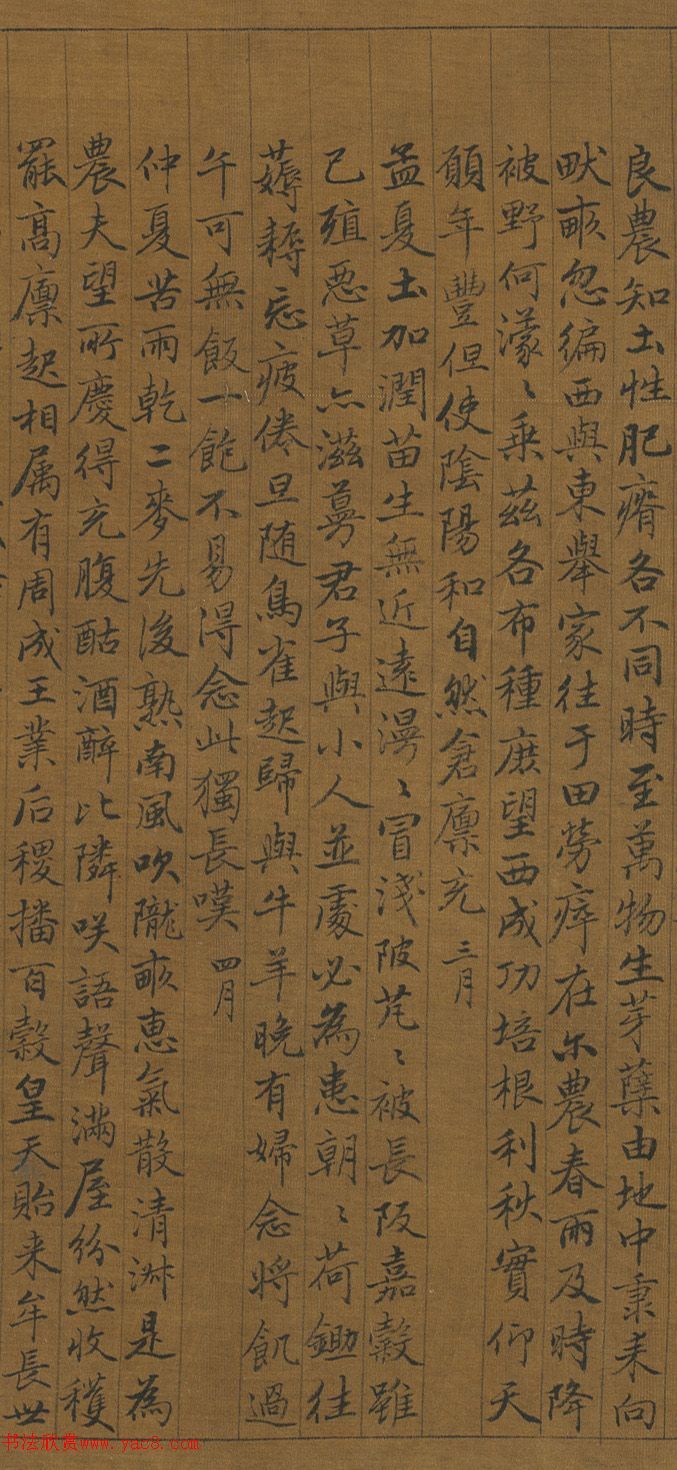 良農知土性肥瘠各不同時至萬物生芽蘖由地中秉耒向
畎畝忽徧西與東舉家往于田勞瘁在尔農春雨及時降
被野何濛〻乗茲各布種庶望西成功培根利秋實仰天
願年豐但使陰陽和自然倉廩充 三月
孟夏土加潤苗生無近遠漫〻冒淺陂芃〻被長阪嘉穀雖
已殖惡草亦滋蔓君子與小人並處必為患朝〻荷鋤往
薅耨忘疲倦旦随鳥雀起歸與牛羊晚有婦念將飢過
午可無飯一飽不易得念此獨長嘆 四月
仲夏苦雨乾二麥先後熟南風吹隴畝惠氣散清淑是為
農夫望所慶得充腹酤酒醉比隣咲語聲滿屋紛然收穫
罷髙廪起相属有周成王業后稷播百穀皇天貽来牟長世
书法欣赏www.yac8.com